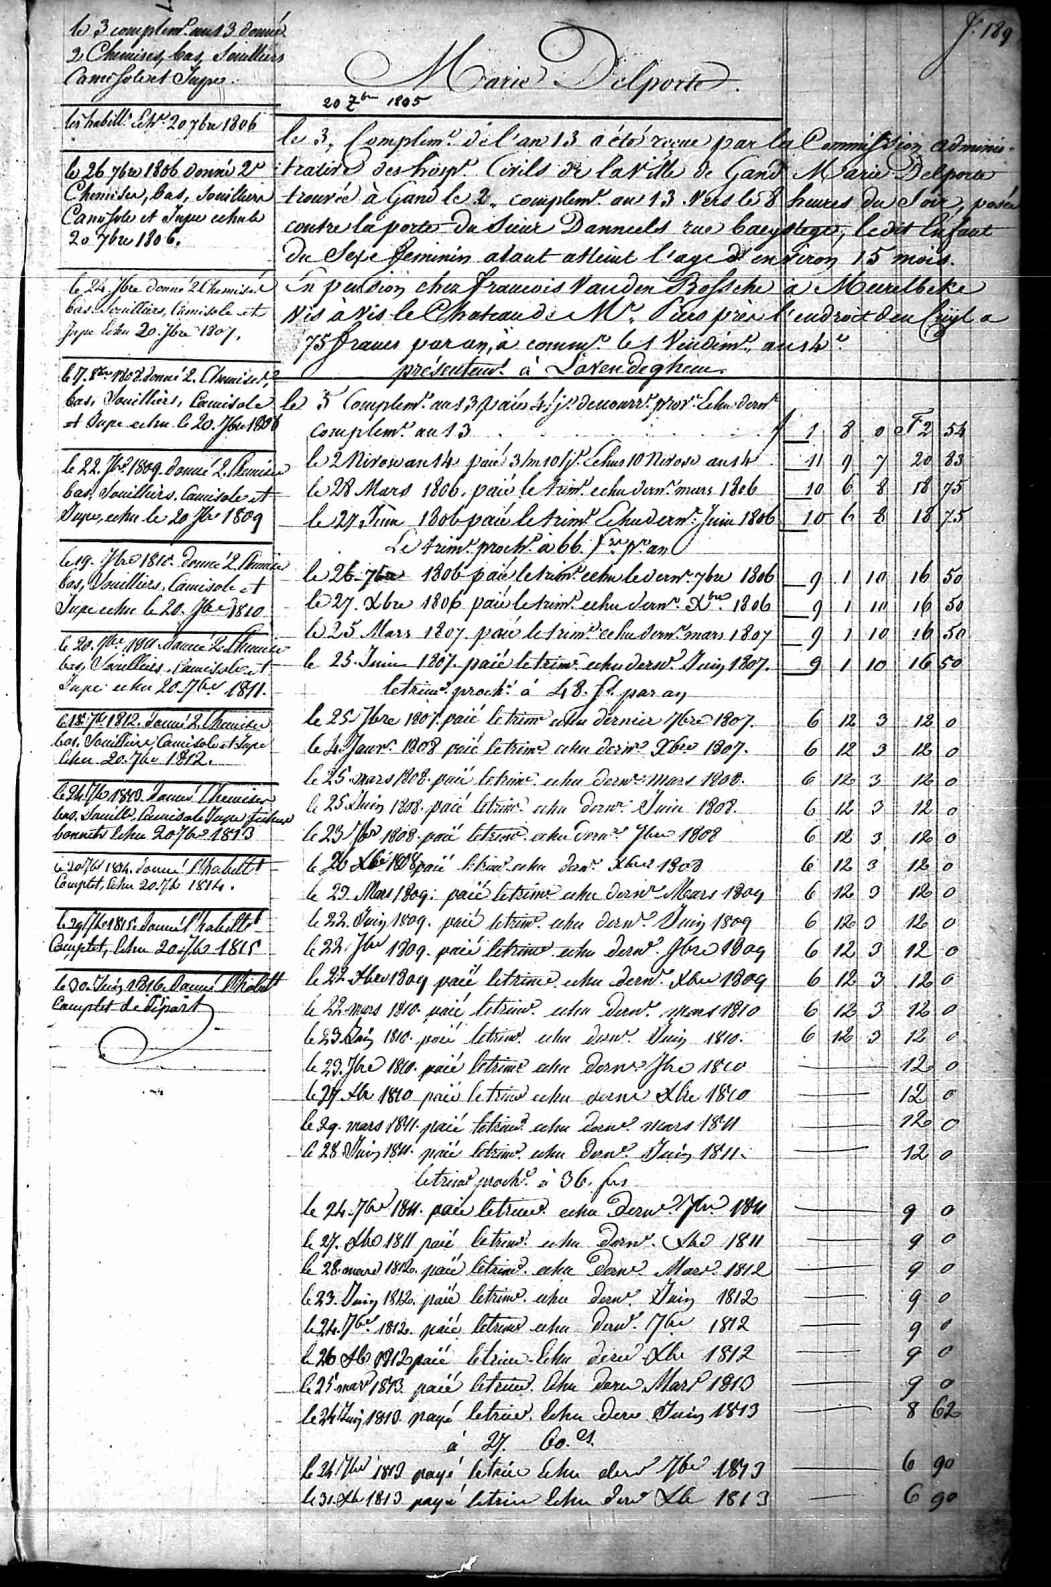 f.º 189
Marie Delporte
20 7bre 1805
le 3. Complemre de l'an 13 a été recue par la Commission adminis-
trative des hosp. Civils de la Ville de Gand Marie Delporte
trouvée à Gand le 2. complemre an 13 vers les 8 heures du Soir, posée
contre la porte du Sieur Danneels rue , le dit Enfant
du Sexe feminin aiant atteint l'age d'environ 15 mois.
En pension chez Francois Vanden Bossche a Meirelbeke
Vis à Vis le Chateau de Mr. près l'endroit a
75 francs par an, à commr. le 1 Vendemre. an 14.
présentemt. à Lovendeghem
le 3 complemr. an 13 donné
2 Chemises, bas, Souilliers
Camisole et Jupe.
les habillts. Echs. 20 7bre 1806
le 26 7bre 1806 donné 2
Chemises, bas, Souilliers
Camisole et Jupe echu le
20 7bre 1806.
le 24 7bre donné 2 Chemises
bas, Souilliers, Camisole et
Jupe Echu 20. 7bre 1807.
le 7. 1808 donné 2. Chemises,
bas, Souilliers, Camisole
et Jupe echu le 20. 7bre 1808
le 22. 7bre 1809. donné 2. Chemises
bas, Souilliers, Camisole et
Jupe, echu le 20 7bre 1809
le 19. 7bre 1810. donné 2. Chemises
bas, Souilliers, Camisole et
Jupe echu le 20. 7bre 1810
le 20. 7bre 1811. donné 2. Chemises
bas, Souilliers, Camisole et
Jupe echu 20. 7bre 1811.
le 18. 7bre 1812. donné 2. Chemises
bas, Souilliers, Camisole et Jupe
Echu 20. 7bre 1812.
le 24. 7bre 1813. donné Chemises
bas, Souill. Camisole Jupe
bonnets Echu 20 7bre 1813
le 20 7bre 1814. donné l'habillt
Complet, Echu 20. 7b 1814.
le 29 7bre 1815. donné l'habillt
Complet, Echu 20 7b 1815
le 30. Juin 1816. donné l'habillt
Complet de départ
le 5 Complemr. an 13 paié Echu dernr.
complemr. an 13 1 8 0 F 2 54
le 2 Nivose an 14 paié 3 m 10 j. Echus 10 Nivose an 14 11 9 7 20 83
le 28 Mars 1806. paié le trimr. echu dernr. mars 1806 10 6 8 18 75
le 27. Juin 1806 paié le trimr. Echu dernr. Juin 1806 10 6 8 18 75
Le trimr. prochr. à 66. frs pr. an
le 26. 7bre 1806 paié le trimr. echu le dernr. 7bre 1806 9 1 10 16 50
le 27. Xbre 1806 paié le trimr. echu dernr. Xbre. 1806 9 1 10 16 50
le 25 Mars 1807. paié le trimr. echu dernr. mars 1807 9 1 10 16 50
le 25. Juin 1807. paié le trimr. echu dernr. Juin 1807. 9 1 10 16 50
le trimr. prochr. à 48. f. par an
le 25 7bre 1807. paié le trimr echu dernier 7bre 1807. 6 12 3 12 0
le 4. Janvr. 1808 paié le trimr. echu dernr. Xbre 1807. 6 12 3 12 0
le 25. mars 1808. paié le trimr. echu dernr. mars 1808. 6 12 3 12 0
le 25 Juin 1808. paié le trimr. echu dernr. Juin 1808. 6 12 3 12 0
le 23 7bre 1808. paié le trimr. echu dernr. 7bre 1808 6 12 3 12 0
le 26 Xbre 1808 paié le trimr. echu dernr. Xbre 1808 6 12 3 12 0
le 23. Mars 1809. paié le trimr. echu dernr. Mars 1809 6 12 3 12 0
le 22. Juin 1809. paié le trimr. echu dernr. Juin 1809 6 12 3 12 0
le 22. 7bre 1809. paié le trimr echu dernr. 7bre 1809 6 12 3 12 0
le 22 Xbre 1809 paié le trimr. echu dernr. Xbre 1809 6 12 3 12 0
le 22 mars 1810. paié le trimr. echu dernr. mars 1810 6 12 3 12 0
le 23 Juin 1810. paié le trimr. echu dernr. Juin 1810. 6 12 3 12 0
le 23. 7bre 1810. paié le trimr echu dernr 7bre 1810 12 0
le 27. Xbr 1810 paié le trimr echu dernr Xbre 1810 12 0
le 29. mars 1811. paié le trimr. echu dernr. mars 1811 12 0
le 28 Juin 1811. paié le trimr. echu dernr. Juin 1811. 12 0
le trimr prochr. à 36. frs
le 24. 7bre 1811. paié le trimr. echu dernr. 7bre 1811 9 0
le 27. Xbre 1811 paié le trimr. echu dernr. Xbre 1811 9 0
le 28. mars 1812. paié le trimr. echu dernr. Mars 1812 9 0
le 23. Juin 1812. paié le trimr. echu dernr. Juin 1812 9 0
le 24. 7bre. 1812. paié le trimr echu dernr. 7bre 1812 9 0
le 26 Xb 1812 paié le trimr. Echu dernr Xbre 1812 9 0
le 25 mars 1813. paié le trimr. Echu dernr Mars 1813 9 0
le 24 Juin 1813. payé le trimr. Echu dernr Juin 1813 8 62
à 27. 60. cs.
le 24 7bre 1813 payé le trimr Echu dernr 7bre 1813 6 90
le 31. Xb 1813 payé le trimr Echu dernr Xbr 1813 6 90